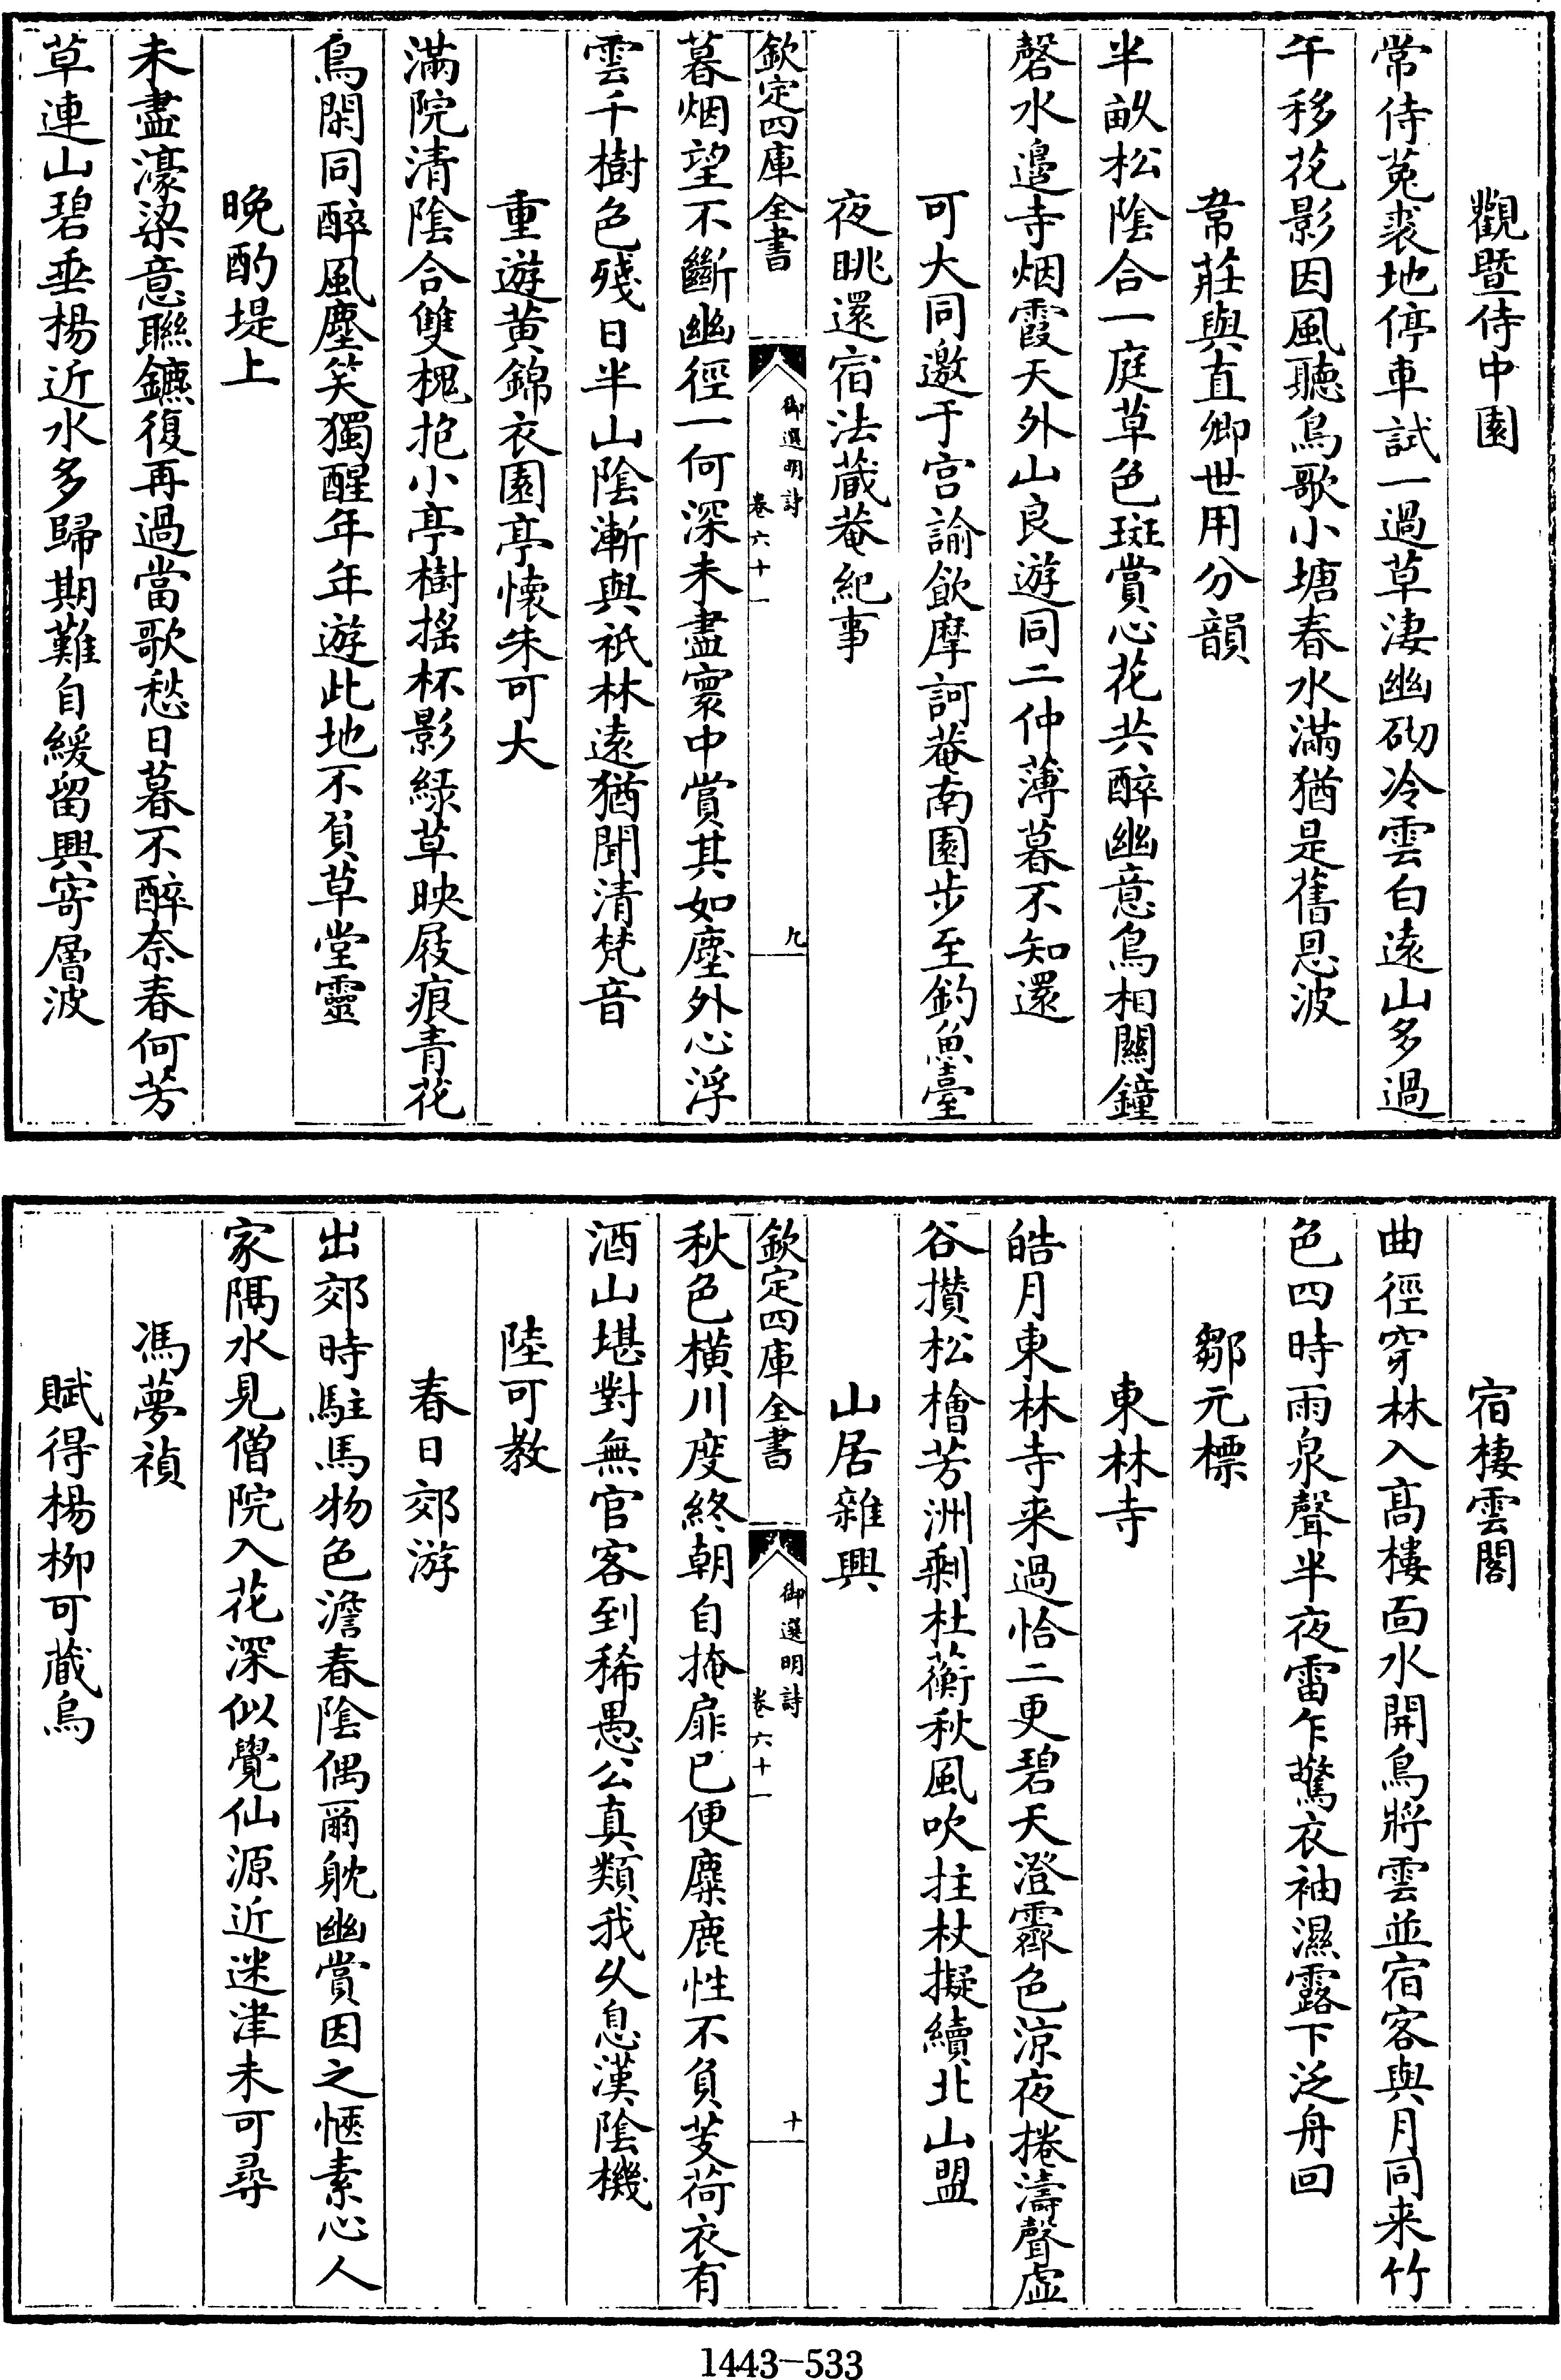 觀暨侍中園
常侍菟裘地停車試一過草淒幽砌冷雲白遠山多過
午移花影因風聽鳥歌小塘春水滿猶是舊恩波
韋莊與直卿世用分韻
半畝松陰合一庭草色斑賞心花共醉幽意鳥相關鐘
磬水邉寺烟霞天外山良遊同二仲薄暮不知還
可大同邀于宫諭飲摩訶菴南園步至釣魚臺
夜眺還宿法蔵菴紀事
欽定四庫全書
御選明詩
卷六十一
九
暮烟望不斷幽徑一何深未盡寰中賞其如塵外心浮
雲千樹色殘日半山陰漸與祇林遠猶聞清梵音
重遊黄錦衣園亭懷朱可大
滿院清陰合雙槐抱小亭樹揺杯影緑草映屐痕青花
鳥閑同醉風塵笑獨醒年年遊此地不負草堂靈
晚酌堤上
未盡濠梁意聯鑣復再過當歌愁日暮不醉奈春何芳
草連山碧垂楊近水多歸期難自緩留興寄層波
宿棲雲閣
曲徑穿林入髙樓面水開鳥將雲並宿客與月同来竹
色四時雨泉聲半夜雷乍驚衣袖濕露下泛舟回
鄒元標
東林寺
皓月東林寺来過恰二更碧天澄霽色涼夜捲濤聲虚
谷攅松檜芳洲剩杜蘅秋風吹拄杖擬續北山盟
山居雜興
欽定四庫全書
御選明詩
卷六十一
十
秋色橫川度終朝自掩扉已便麋鹿性不負芰荷衣有
酒山堪對無官客到稀愚公真類我乆息漢陰機
陸可教
春日郊游
出郊時駐馬物色澹春陰偶爾躭幽賞因之愜素心人
家隔水見僧院入花深似覺仙源近迷津未可尋
馮夢禎
賦得楊柳可蔵烏
1443-533